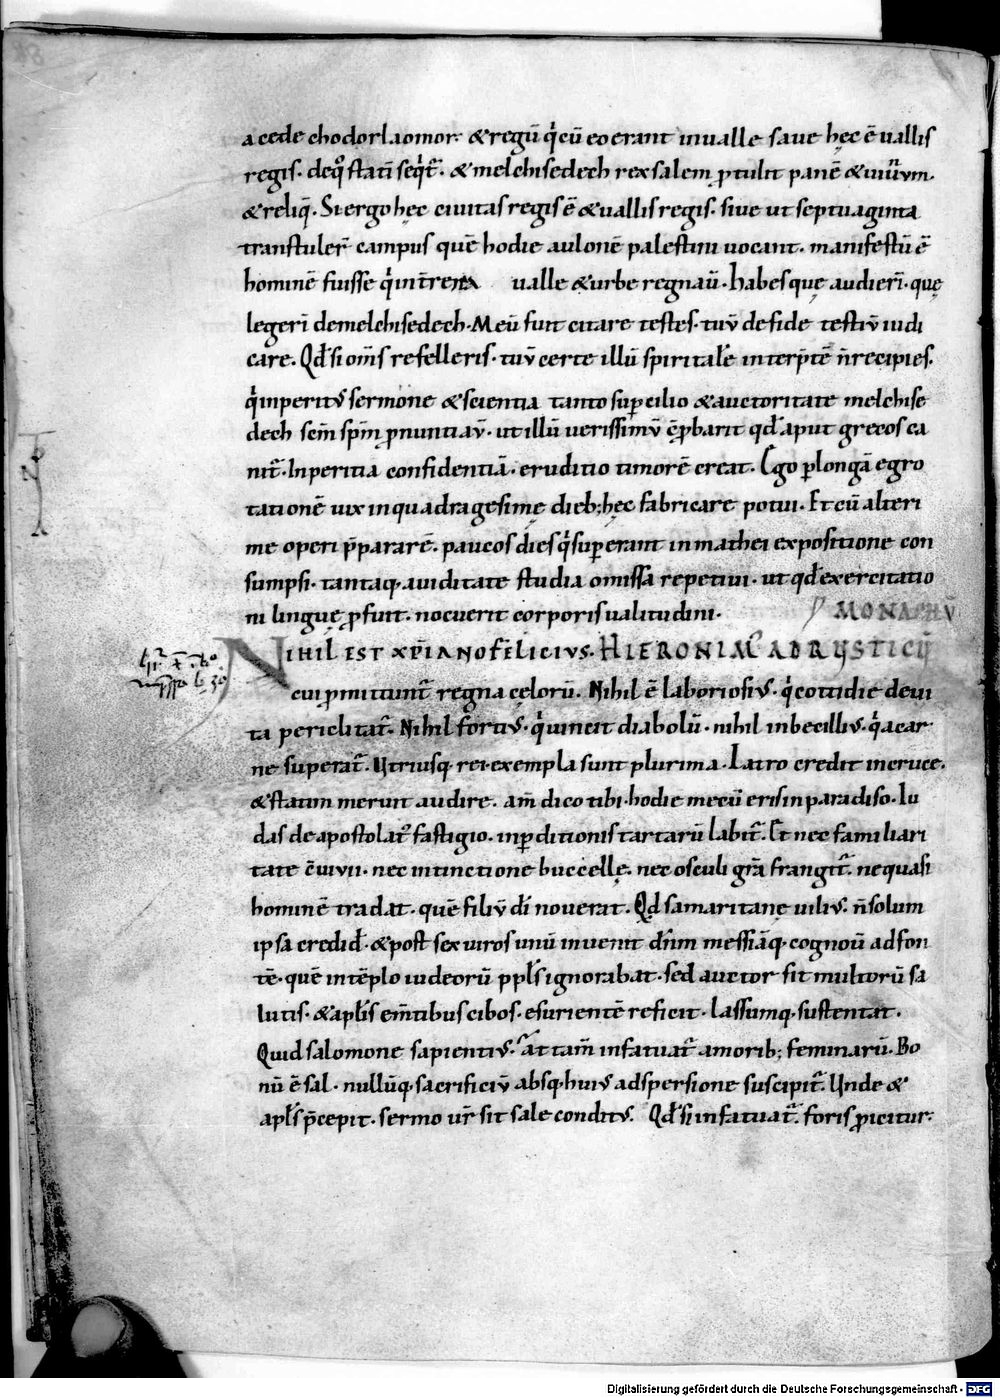 a cede chodorlaomor· & regū q̇ cū eo erant in ualle saue hęc ē uallis
regis· de q̊ statī seq̇t̄· & melchisedech rex salem ꝓtulit panē & uinum·
& reliq̄· Si ergo hęc ciuitas regis ē & uallis regis· siue ut septuaginta
transtuler̄ campus quē hodie aulonē palestini uocant· manifestū ē
hominē fuisse q̇ in trena ualle & urbe regnau̅· habes quę audieri· quę
legeri de melchisedech· Meū fuit citare testes· tuū de fide testiū iudi
care· Qd̄ si om̄s refelleris· tuū certe illū spiritalē interp̄tē n̄ recipies·
q̇ inperitus sermone & scientia tanto suꝑcilio & auctoritate melchise
dech sc̄m sp̄m ꝓnuntiau̅· ut illū uerissimū cōꝓbarit qd̄ aput grecos ca
nit̄· Inperitia confidentiā· eruditio timorē creat· Ego ꝑ longā egro
tationē uix in quadragesimę dieb; hęc fabricare potui· Et cū alteri
me operi p̄pararē· paucos dies q̇ suꝑerant in mathei expositione con
sumpsi· tantaq· auiditate studia omissa repetiui· ut qd̄ exercitatio
ni linguę ꝓfuit· nocuerit corporis ualitudini·
MONACHŪ
NIHIL EST XP̄IANO FELICIVS· HIERONIM' AD RUSTICŪ
cui ꝓmittunt̄ regna cęlorū· Nihil ē laboriosius· q̇ cottidie de ui
ta periclitat̄· Nihil fortius· q̇ uincit diabolū· nihil inbecillius· q̇ a car
ne superat̄· Utriusq· rei exempla sunt plurima· Latro credit in cruce·
& statim meruit audire· am̄ dico tibi· hodie mecū eris in paradiso· Iu
das de apostolat' fastigio· in ꝑditionis tartarū labit̄· Et nec familiari
tate cōuiuii· nec intinctione buccellę· nec osculi gr̄a frangit̄· ne quasi
hominē tradat· quē filiū dī nouerat· Qd samaritane uilius· n̄ solum
ipsa credid̄· & post sex uiros unū inuenit dn̄m messiāq· cognou̅ ad fon
tē· quē in tēplo iudeorū ppl̄s ignorabat· sed auctor fit multorū sa
lutis· & apl̄is em̄tibus cibos· esurientē reficit· lassumq· sustentat·
Quid salomone sapientius· attam̄ infatuat̄ amorib; feminarū· Bo
nū ē sal· nullūq· sacrificiū absq· huius adspersione suscipit̄· Unde &
apl̄s p̄cepit· sermo ur̄ sit sale conditus· Qd̄ si infatuat̄· foris ꝓicitur·